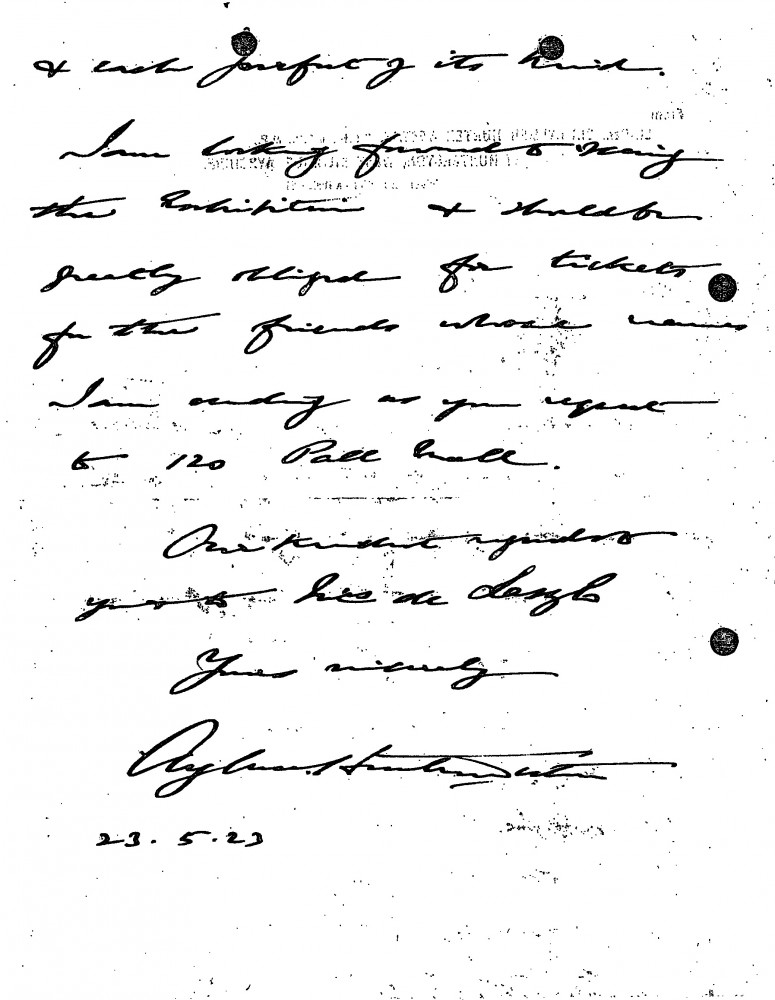 & each perfect of its kind.
I am looking forward to seeing
the Exhibition & should be
greatly obliged for tickets
for the friends whose names
I am sending as you request
to 120 Pall Mall.
Our kindest regards to
you & to Mrs de Laszlo
Yours sincerely
Aylmer Hunter Weston
23.5.23